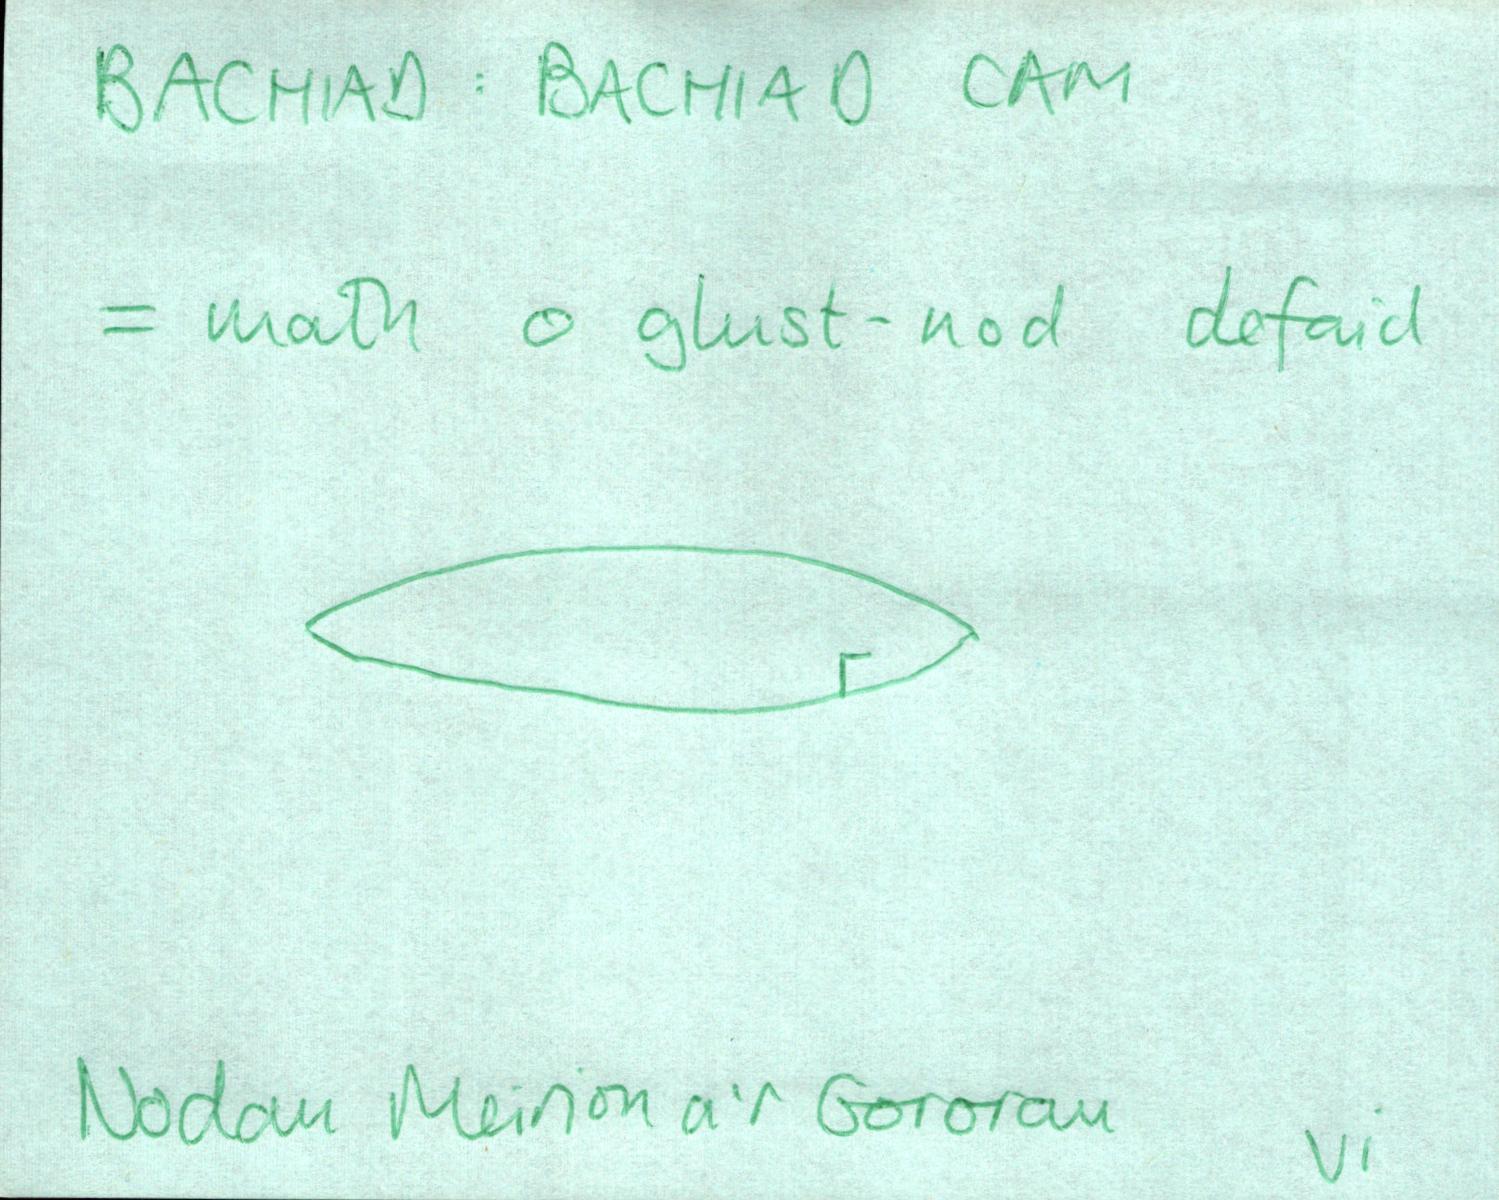 BACHIAD : BACHIAD CAM
= math o glust-nod defaid
Nodau Meirion a'r Gororau
vi